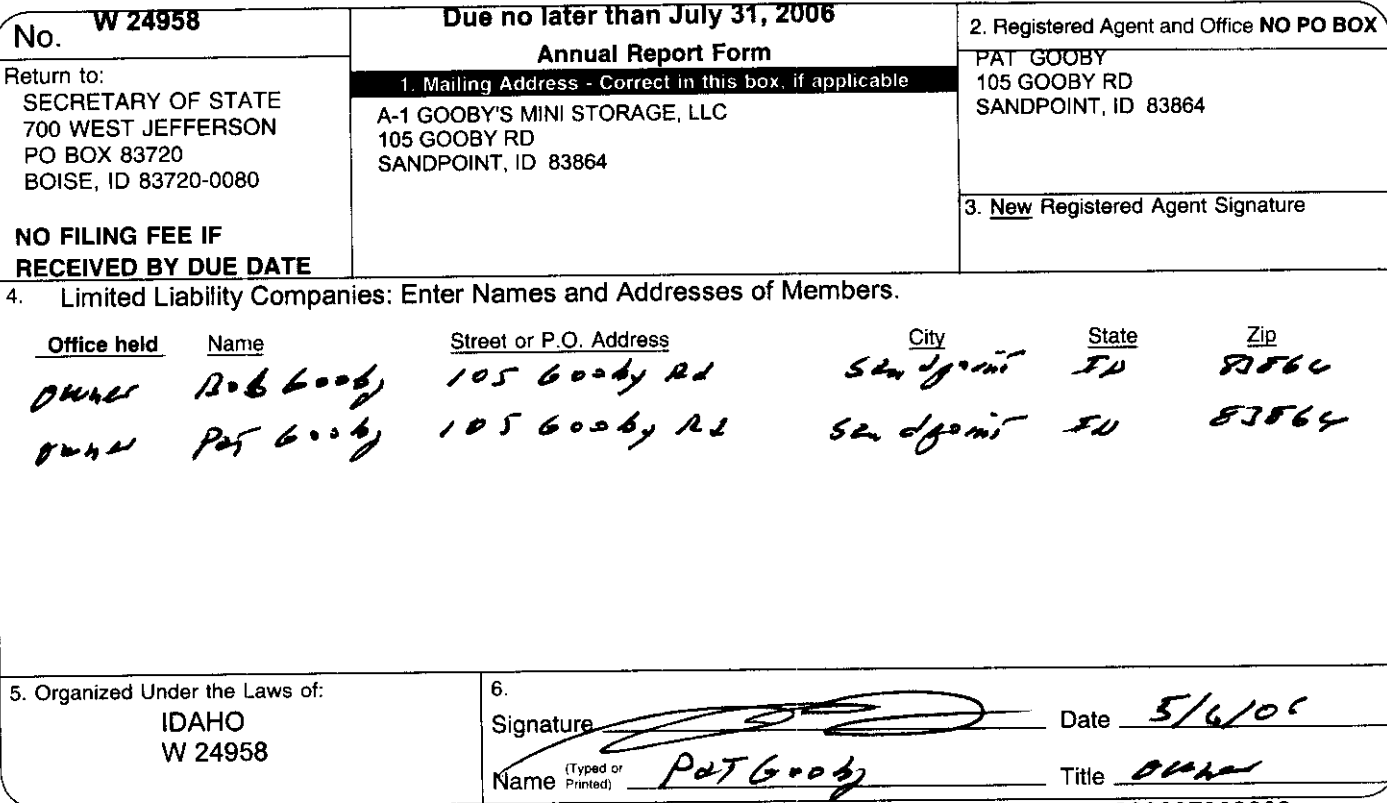 No. W 24958
Return to:
SECRETARY OF STATE
700 WEST JEFFERSON
PO BOX 83720
BOISE, ID 83720-0080
NO FILING FEE IF
RECEIVED BY DUE DATE
Due no later than July 31, 2006
Annual Report Form
1. Mailing Address - Correct in this box, if applicable
A-1 GOOBY'S MINI STORAGE, LLC
105 GOOBY RD
SANDPOINT, ID 83864
2. Registered Agent and Office NO PO BOX
PAT GOOBY
105 GOOBY RD
SANDPOINT, ID 83864
3. New Registered Agent Signature
4. Limited Liability Companies: Enter Names and Addresses of Members.
Office held Name Street or P.O. Address City State Zip
owner Bob Gooby 105 Gooby Rd Sandpoint ID 83864
owner Pat Gooby 105 Gooby Rd Sandpoint ID 83864
5. Organized Under the Laws of:
IDAHO
W 24958
6.
Signature Date 5/6/06
Name (Typed or Printed) Pat Gooby Title owner